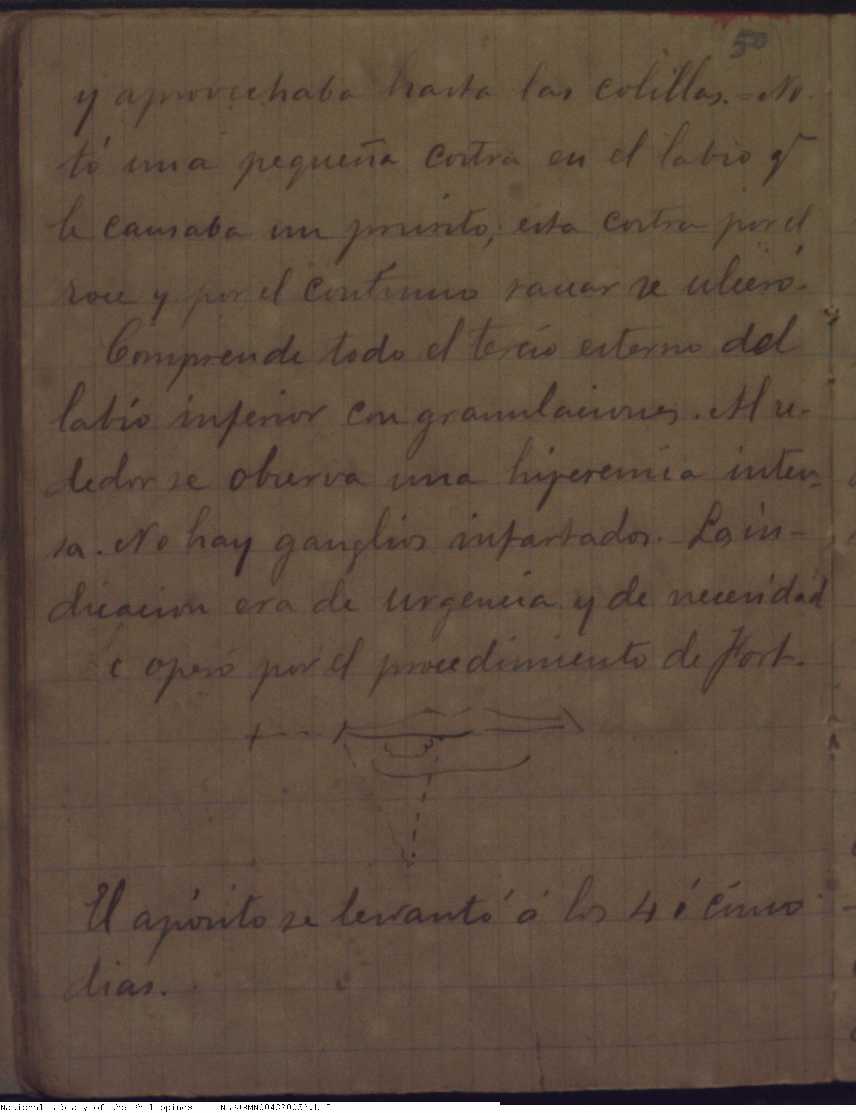 50
y aprovechaba hasta las colillas.=No
tó una pequeña costra en el labio q
le causaba un prurito, esta costra por el
roce y por el continuo rascar se ulceró.
Comprende todo el tercio esterno del
labio inferior con granulaciones. Al re-
dedor se observa una hiperemia inten-
sa. No hay ganglios infartados. La in-
dicacion era de urgencia y de necesidad
operó por el procedimiento de
El apósito se levantó á los 4 ó cinco
dias.
National Library of the Philippines